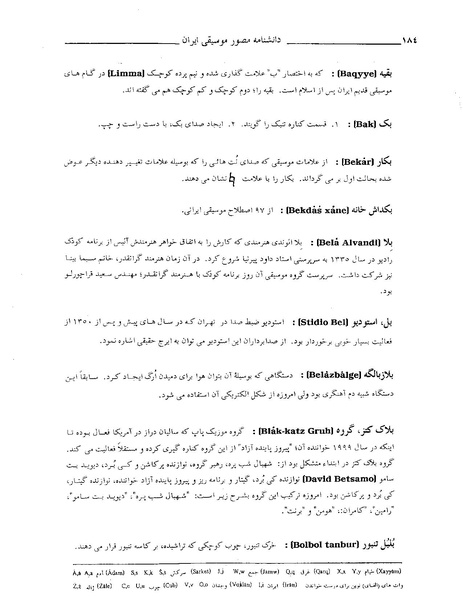 ١٨٤ دانشنامه مصور موسیقی ایران
بقیه (Baqyye) : که به اختصار "ب" علامت گذاری شده و نیم پرده کوچک (Limma) در گام های
موسیقی قدیم ایران پس از اسلام است. بقیه را؛ دوم کوچک و کم کوچک هم می گفته اند.
بک (Bak) : ۱. قسمت کناره تنبک را گویند. ۲. ایجاد صدای بک، با دست راست و چپ.
بکار (Bekâr) : از علامات موسیقی که صدای نُت هائی را که بوسیله علامات تغییر دهنده دیگر عوض
شده بحالت اول بر می گرداند. بکار را با علامت ♮ نشان می دهند.
بکداش خانه (Bekdâš xâne) : از ۹۷ اصطلاح موسیقی ایرانی.
بِلا (Belâ Alvandi) : بِلا الوندی هنرمندی که کارش را به اتفاق خواهر هنرمندش آلیس از برنامه کودک
رادیو در سال ۱۳۳۵ به سرپرستی استاد داود پیرنیا شروع کرد. در آن زمان هنرمند گرانقدر، خانم سیما بینا
نیز شرکت داشت. سرپرست گروه موسیقی آن روز برنامه کودک با هنرمند گرانقدر؛ مهندس سعید قراچورلو
بود.
بل، استودیو (Stidio Bel) : استودیو ضبط صدا در تهران که در سال های پیش و پس از ۱۳۵۰ از
فعالیت بسیار خوبی برخوردار بود. از صدابرداران این استودیو می توان به ایرج حقیقی اشاره نمود.
بلازبالگه (Belâzbâlge) : دستگاهی که بوسیلهٔ آن بتوان هوا برای دمیدن اُرگ ایجاد کرد. سابقاً این
دستگاه شبیه دم آهنگری بود ولی امروزه از شکل الکتریکی آن استفاده می شود.
بلاک کتز، گروه (Blâk-katz Gruh) : گروه موزیک پاپ که سالیان دراز در آمریکا فعال بوده تا
اینکه در سال ۱۹۹۹ خواننده آن؛ "پیروز پاینده آزاد" از این گروه کناره گیری کرده و مستقلاً فعالیت می کند.
گروه بلاک کتز در ابتداء متشکل بود از: شهبال شب پره، رهبر گروه، نوازنده پرکاشن و کی بُرد، دیوید بت
سامو (David Betsamo) نوازنده کی بُرد، گیتار و برنامه ریز و پیروز پاینده آزاد خواننده، نوازنده گیتار،
کی بُرد و پرکاشن بود. امروزه ترکیب این گروه بشرح زیر است: "شهبال شب پره"، "دیوید بت سامو"،
"رامین"، "کامران:، "هومن" و "برنت".
بُلبُل تنبور (Bolbol tanbur) : خرک تنبور، چوب کوچکی که تراشیده، بر کاسه تنبور قرار می دهند.